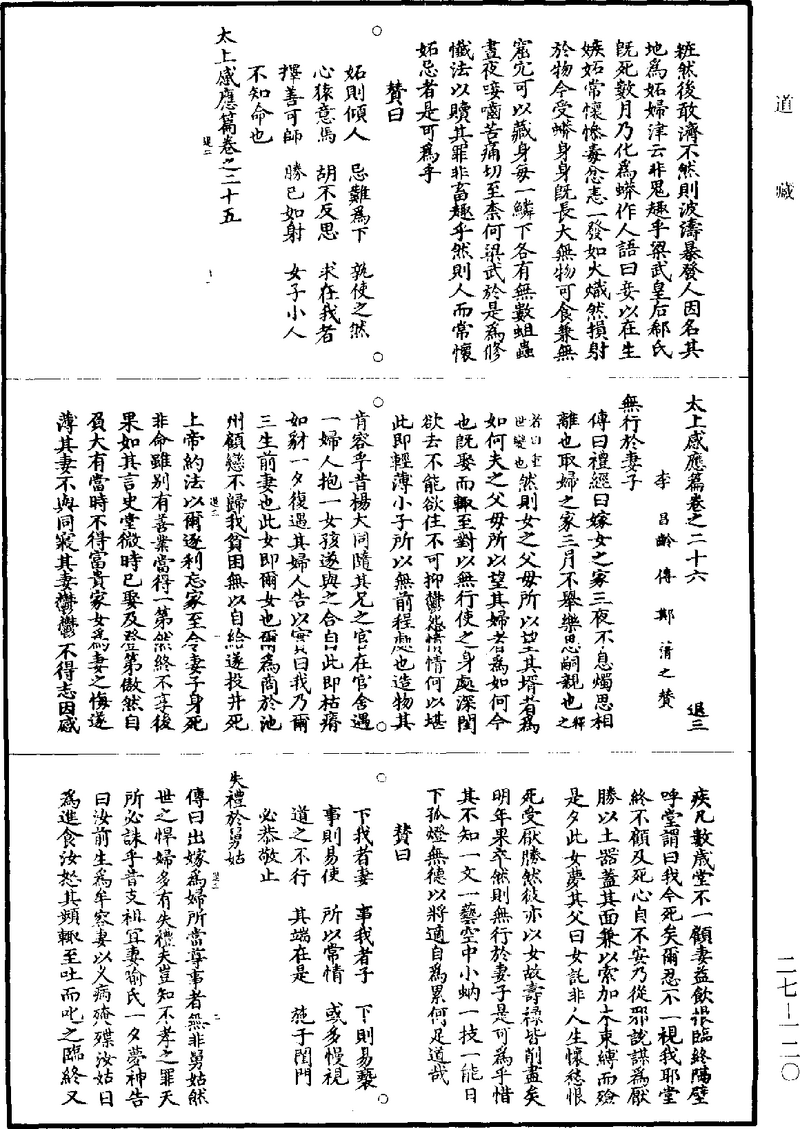 道藏
粧然後敢濟不然則波濤暴發人因名其
地爲妬婦津云非鬼趣乎梁武皇后郗氏
旣死數月乃化爲蟒作人語曰妾以在生
嫉妬常懷慘毒忿恚一發如火熾然損射
於物今受蟒身身旣長大無物可食兼無
窟穴可以藏身每一鱗下各有無數蛆蟲
晝夜唼嚙苦痛切至柰何梁武於是爲修
懺法以贖其罪非畜趣乎然則人而常懷
妬忌者是可爲乎
贊曰
妬則傾人　忌難爲下　孰使之然
心猿意馬　胡不反思　求在我者
擇善可師　勝己如射　女子小人
不知命也
太上感應篇卷之二十五
太上感應篇卷之二十六　退三
李昌齡傳　鄭清之贊
無行於妻子
傳曰禮經曰嫁女之家三夜不息燭思相
離也取婦之家三月不舉樂思嗣親也釋之
者曰重世變也然則女之父母所以望其壻者爲
如何夫之父母所以望其婦者爲如何今
也旣娶而輒至對以無行使之身處深閨
欲去不能欲住不可抑鬱怨情情何以堪
此即輕薄小子所以無前程處也造物其
肯容乎昔楊大同隨其兄之官在官舍遇
一婦人抱一女孩遂與之合自此即枯瘠
如豺一夕復遇其婦人告以實曰我乃爾
三生前妻也此女即爾女也爾爲商於池
州顧戀不歸我貧困無以自給遂投井死
上帝約法以爾逐利忘家至令妻子身死
非命雖別有善業當得一第然終不享後
果如其言史堂微時已娶及登第傲然自
負大有當時不得富貴家女爲妻之悔遂
薄其妻不與同寢其妻鬱鬱不得志因感
疾凡數歲堂不一顧妻益飲恨臨終隔壁
呼堂謂曰我今死矣爾忍不一視我耶堂
終不顧及死心自不安乃從邪說謀爲厭
勝以土器蓋其面兼以索加大木束縛而殮
是夕此女夢其父曰女託非人生懷愁恨
死受厭勝然彼亦以女故壽祿皆削盡矣
明年果卒然則無行於妻子是可爲乎惜
其不知一文一藝空中小蚋一技一能日
下孤燈無德以將適自爲累何足道哉
贊曰
下我者妻　事我者子　下則易褻
事則易使　所以常情　或多慢視
道之不行　其端在是　施于閨門
必恭敬止
失禮於舅姑
傳曰出嫁爲婦所當尊事者無非舅姑然
世之悍婦多有失禮夫豈知不孝之罪天
所必誅乎昔支祖宜妻喻氏一夕夢神告
曰汝前生爲牟容妻以久病殗殜汝姑日
爲進食汝怒其頻輒至吐而叱之臨終又
二七—一二〇